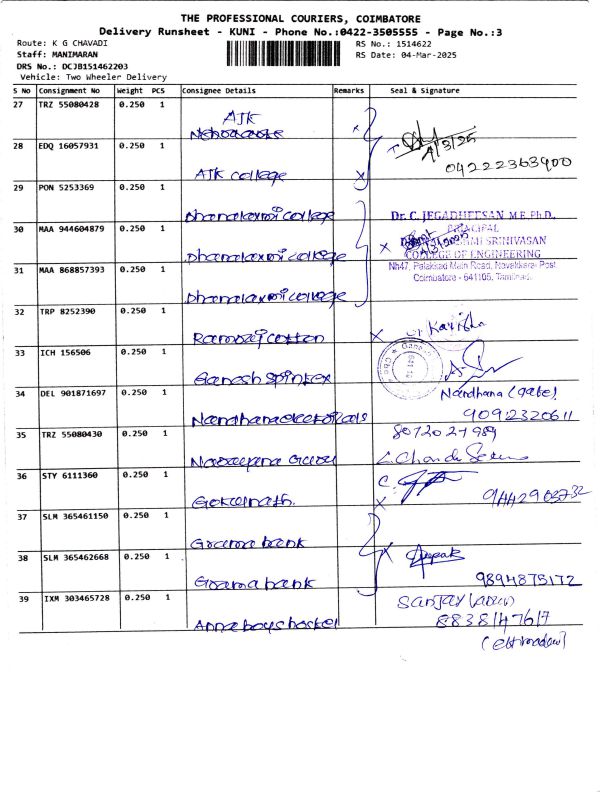 THE PROFESSIONAL COURIERS, COIMBATORE
Delivery Runsheet - KUNI - Phone No.:0422-3505555 - Page No.:3
Route: K G CHAVADI
RS No.: 1514622
Staff: MANIMARAN
RS Date: 04-Mar-2025
DRS No.: DCJB151462203
Vehicle: Two Wheeler Delivery
S No Consignment No Weight PCS Consignee Details Remarks Seal & Signature
27 TRZ 55080428 0.250 1 AJK
4/3/25
28 EDQ 16057931 0.250 1 AJK college 04222363400
29 PON 5253369 0.250 1 Dhanalaxmi college
Dr. C. JEGADHEESAN M.E, Ph.D.,
PRINCIPAL
30 MAA 944604879 0.250 1 Dhanalaxmi college
SRINIVASAN
COLLEGE OF ENGINEERING
NH47, Palakkad Main Road, Navakkarai Post,
Coimbatore - 641105, Tamilnadu
31 MAA 868857393 0.250 1 Dhanalaxmi college
32 TRP 8252390 0.250 1 Ramraj cotton
33 ICH 156506 0.250 1 Ganesh spintex
34 DEL 901871697 0.250 1 Nandhana electricals
Nandhana (gate)
9092320611
35 TRZ 55080430 0.250 1 Narayana Guru
8072027989
36 STY 6111360 0.250 1 Gokulnath.
9442903732
37 SLM 365461150 0.250 1 Grama bank
38 SLM 365462668 0.250 1 Grama bank
Deepak
9894875172
39 IXM 303465728 0.250 1 Anna boys hostel
Sanjay
8838147617